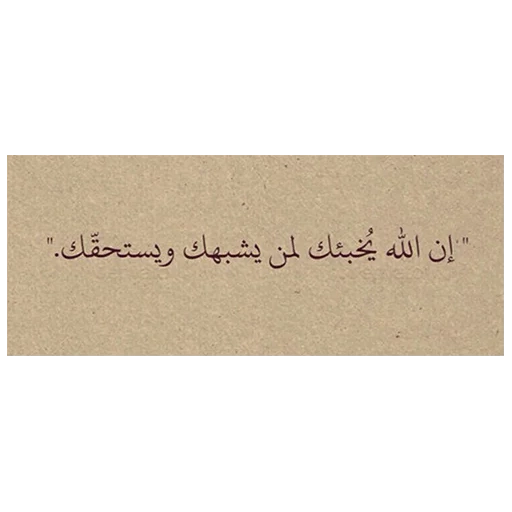 "إن الله يُخبئك لمن يشبهك ويستحقّك."